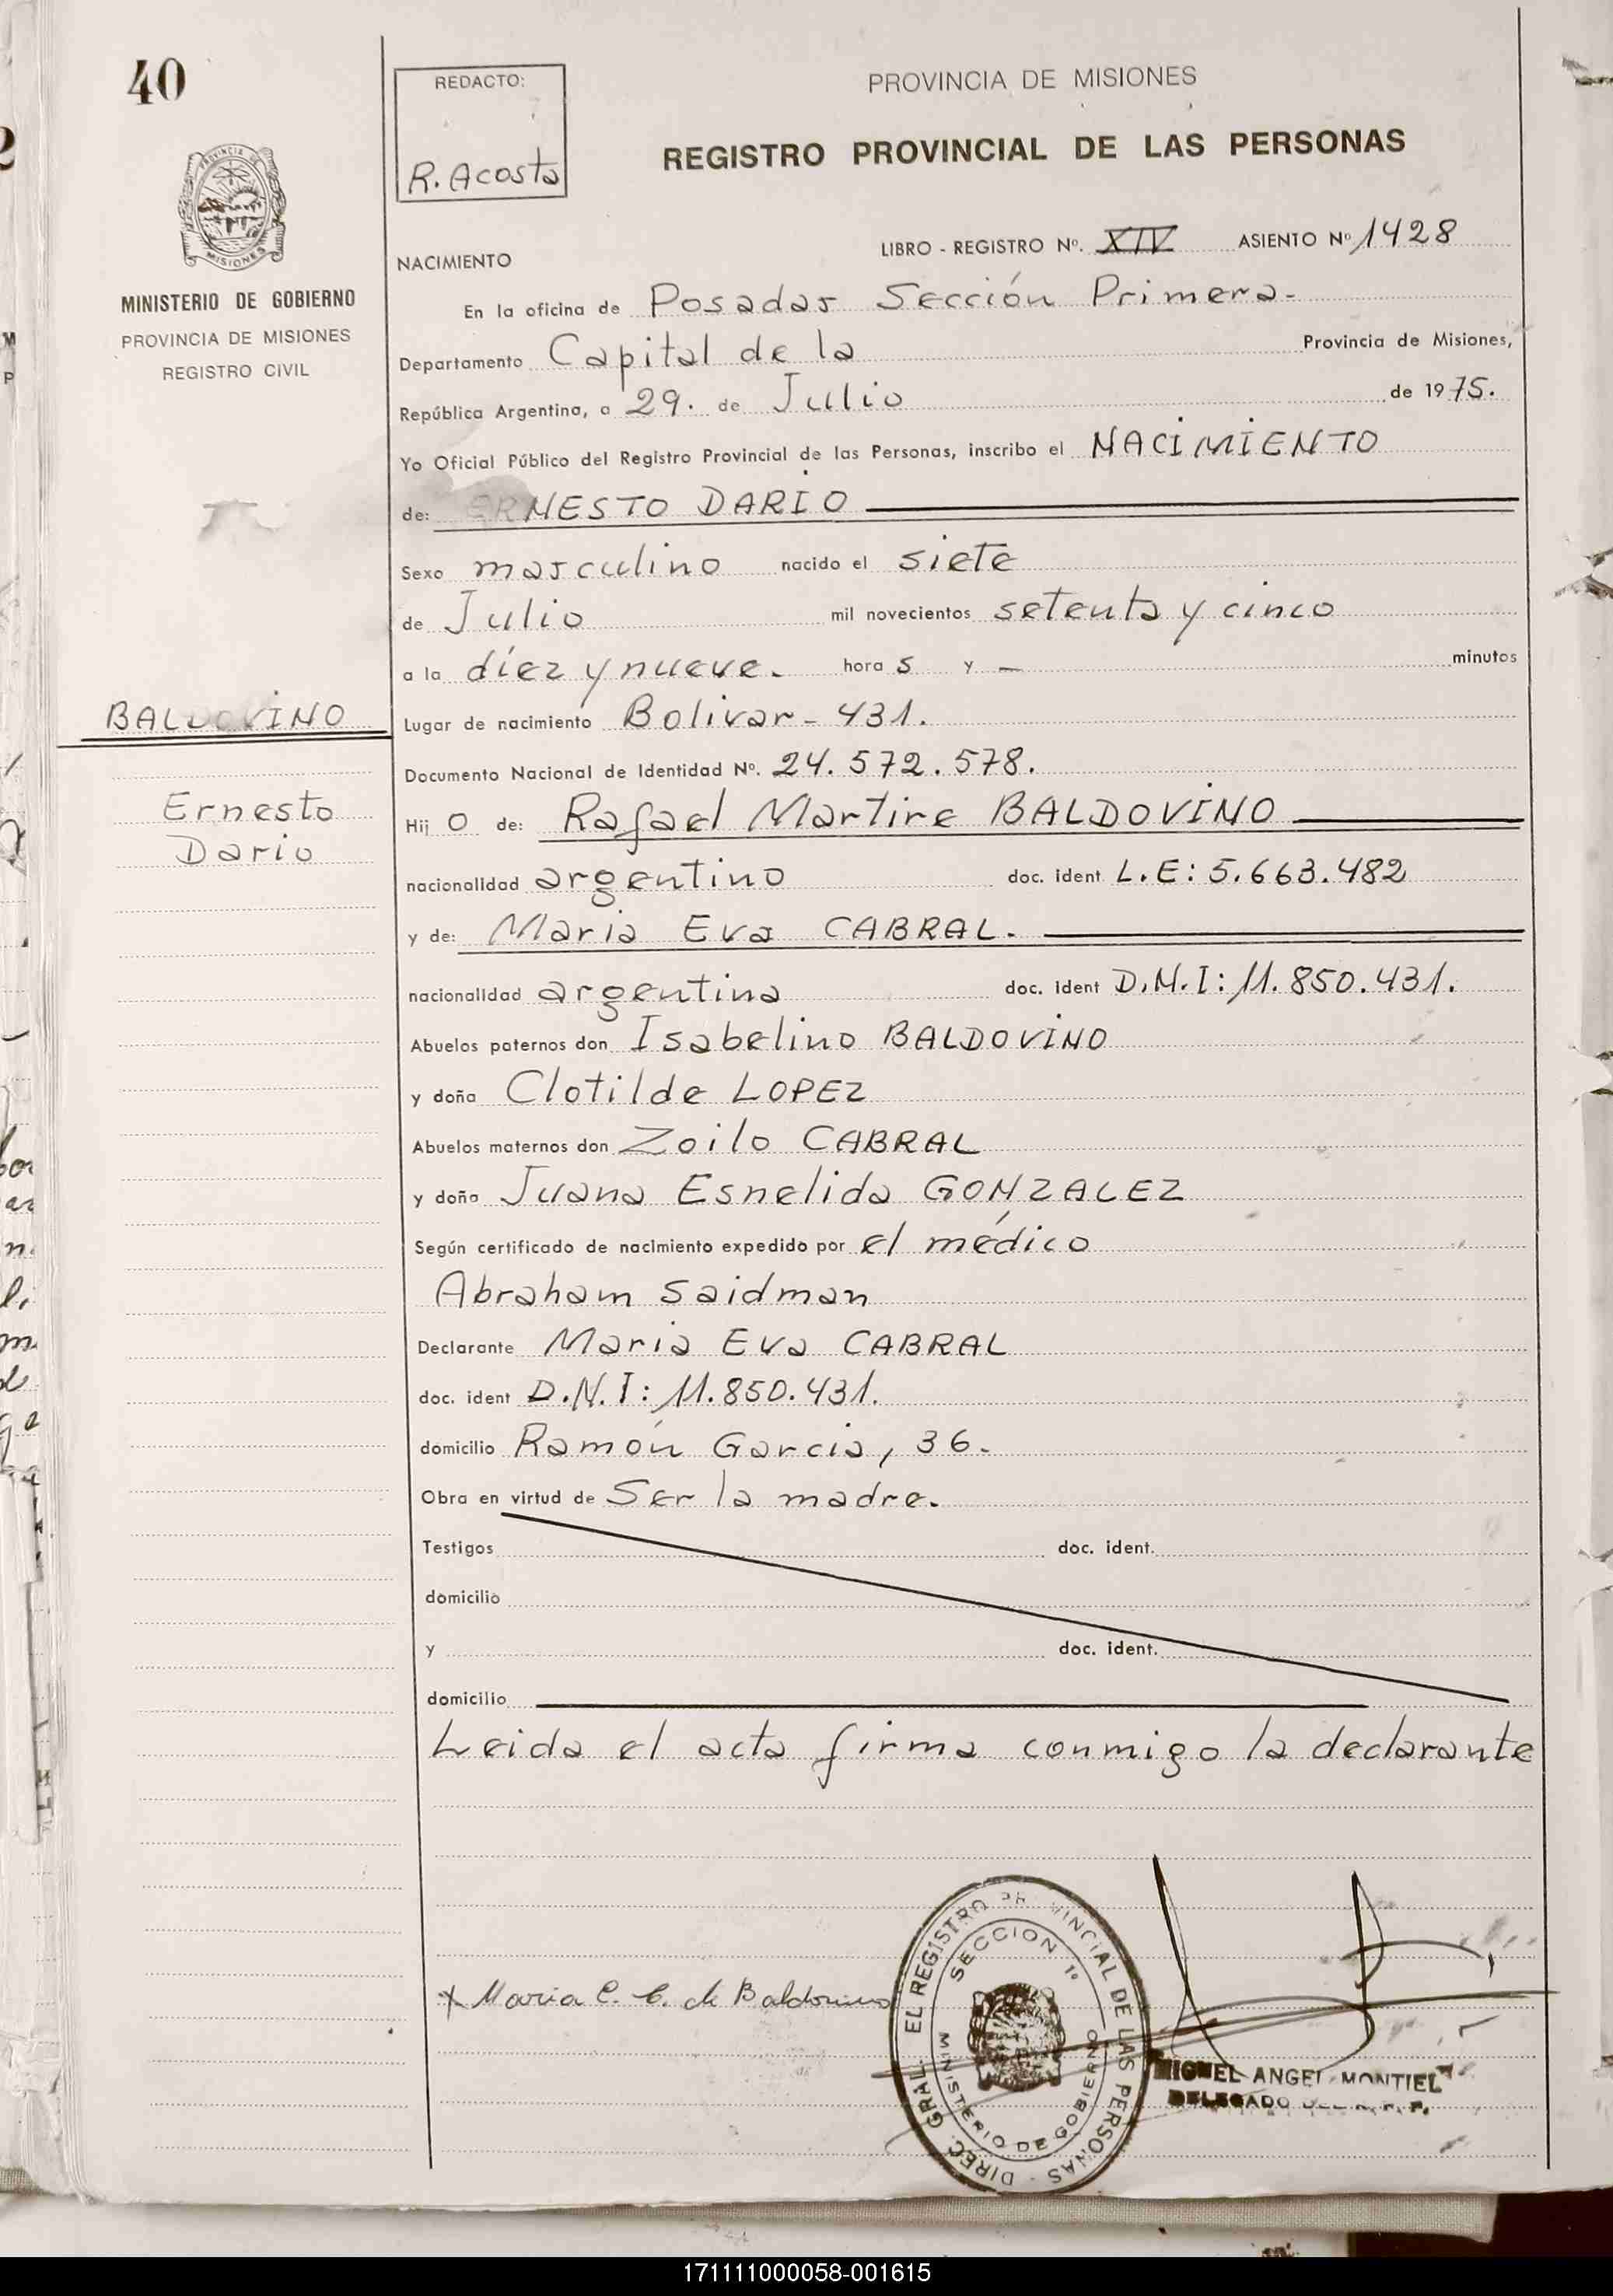 40
REDACTO:
R. Acosta
PROVINCIA DE MISIONES
REGISTRO PROVINCIAL DE LAS PERSONAS
MISIONES
MINISTERIO DE GOBIERNO
PROVINCIA DE MISIONES
REGISTRO CIVIL
NACIMIENTO
LIBRO - REGISTRO Nº. XIV ASIENTO Nº 1428
En la oficina de Posadas Sección Primera-
Departamento Capital de la Provincia de Misiones,
República Argentina, a 29. de Julio de 1975.
Yo Oficial Público del Registro Provincial de las Personas, inscribo el NACIMIENTO
de: ERNESTO DARIO
Sexo masculino nacido el siete
de Julio mil novecientos setenta y cinco
a la diez y nueve. hora s y — minutos
BALDOVINO
Lugar de nacimiento Bolivar - 431.
Documento Nacional de Identidad Nº. 24.572.578.
Ernesto
Dario
Hij o de: Rafael Martire BALDOVINO
nacionalidad argentino doc. ident L.E: 5.663.482
y de: Maria Eva CABRAL.
nacionalidad argentina doc. ident D.N.I: 11.850.431.
Abuelos paternos don Isabelino BALDOVINO
y doña Clotilde LOPEZ
Abuelos maternos don Zoilo CABRAL
y doña Juana Esnelida GONZALEZ
Según certificado de nacimiento expedido por el médico
Abraham Saidman
Declarante Maria Eva CABRAL
doc. ident D.N.I: 11.850.431.
domicilio Ramón Garcia, 36.
Obra en virtud de Ser la madre.
Testigos doc. ident.
domicilio
y doc. ident.
domicilio
Leida el acta firma conmigo la declarante
x Maria E. C. de Baldovino
DIREC. GRAL. EL REGISTRO PROVINCIAL DE LAS PERSONAS
SECCION 1º
MINISTERIO DE GOBIERNO
MIGUEL ANGEL MONTIEL
DELEGADO DEL R. P. P.
171111000058-001615